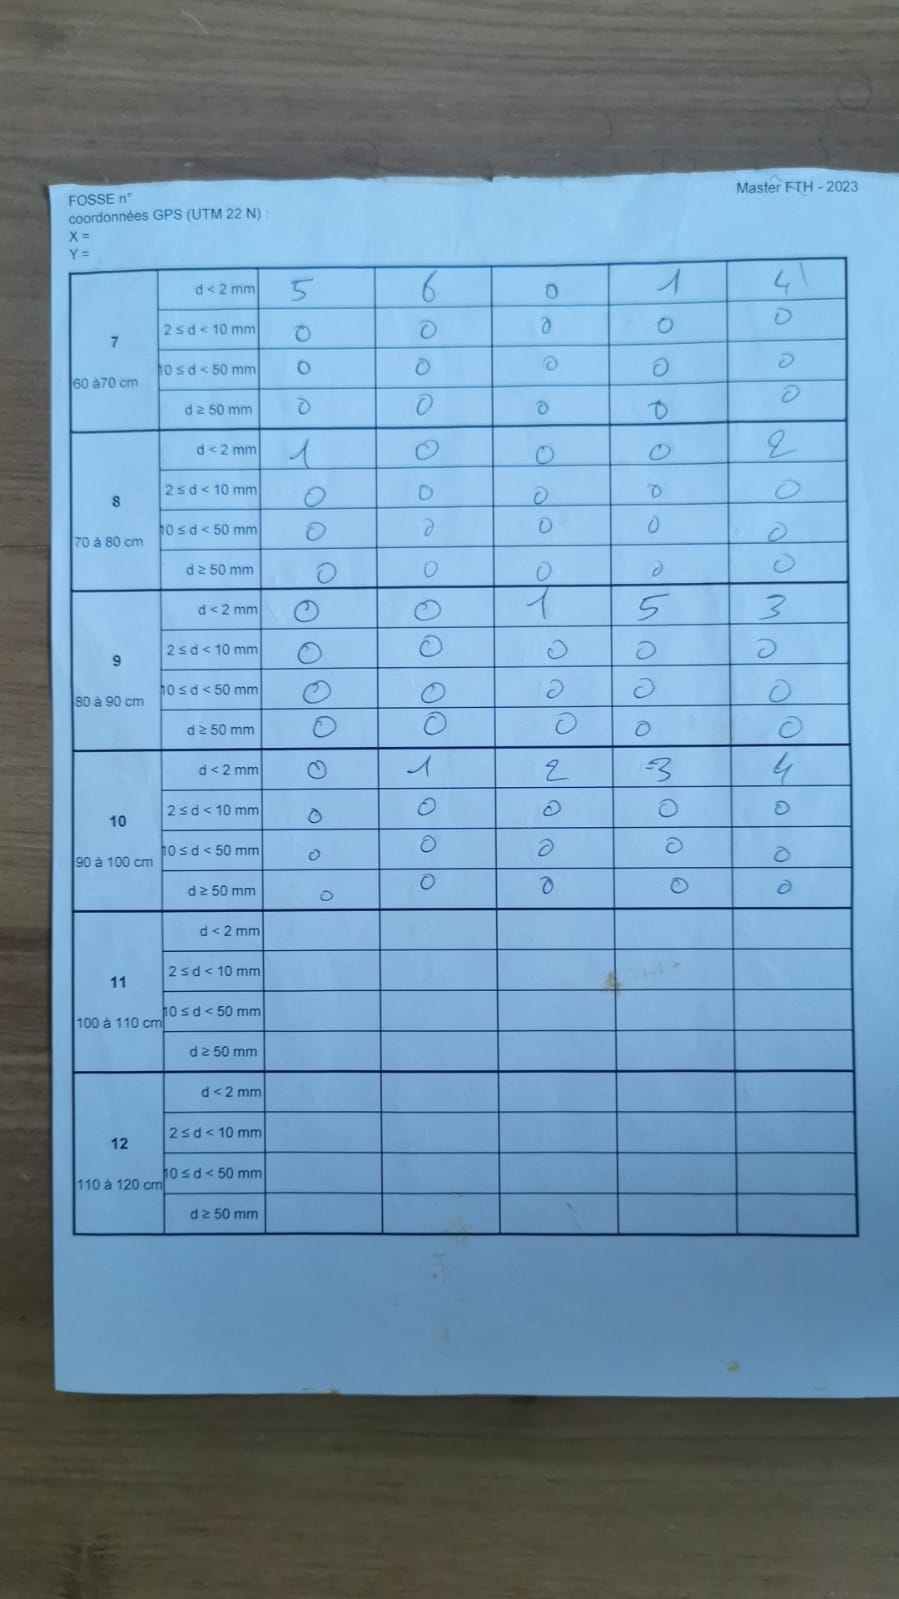 FOSSE n°
Master FTH - 2023
coordonnées GPS (UTM 22 N) :
X =
Y =
7
60 à70 cm
d < 2 mm 5 6 0 1 4
2 ≤ d < 10 mm 0 0 0 0 0
10 ≤ d < 50 mm 0 0 0 0 0
d ≥ 50 mm 0 0 0 0 0
8
70 à 80 cm
d < 2 mm 1 0 0 0 2
2 ≤ d < 10 mm 0 0 0 0 0
10 ≤ d < 50 mm 0 0 0 0 0
d ≥ 50 mm 0 0 0 0 0
9
80 à 90 cm
d < 2 mm 0 0 1 5 3
2 ≤ d < 10 mm 0 0 0 0 0
10 ≤ d < 50 mm 0 0 0 0 0
d ≥ 50 mm 0 0 0 0 0
10
90 à 100 cm
d < 2 mm 0 1 2 3 4
2 ≤ d < 10 mm 0 0 0 0 0
10 ≤ d < 50 mm 0 0 0 0 0
d ≥ 50 mm 0 0 0 0 0
11
100 à 110 cm
d < 2 mm
2 ≤ d < 10 mm
10 ≤ d < 50 mm
d ≥ 50 mm
12
110 à 120 cm
d < 2 mm
2 ≤ d < 10 mm
10 ≤ d < 50 mm
d ≥ 50 mm